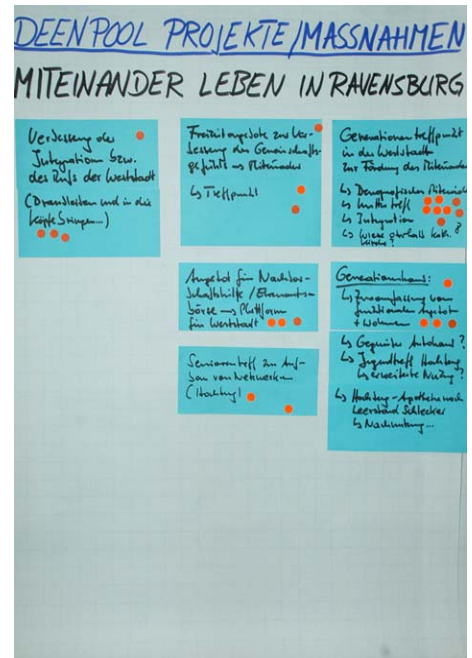 DEENPOOL PROJEKTE/MASSNAHMEN
MITEINANDER LEBEN IN RAVENSBURG
Verbesserung der
Integration bzw.
des Rufs der Weststadt
(Dranbleiben und in die
Köpfe bringen...)
Freizeitangebote zur Ver-
besserung des Gemeinschafts-
gefühls
↳ Treffpunkt
Angebot für Nachbar-
schaftshilfe / Ehrenamts-
börse → Plattform
für Weststadt
Seniorentreff zum Auf-
bau von Netzwerken
Generationentreffpunkt
in der Weststadt
zur Förderung des Miteinander
↳
↳
↳ Integration
↳ Wiese
Generationenhaus:
↳ Zusammenfassung von
funktionalem Angebot
+ Wohnen
↳ Autohaus?
↳ Jugendtreff
↳ erweiterte Nutzung?
↳ Apotheke
Leerstand Schlecker
↳ Nachnutzung...